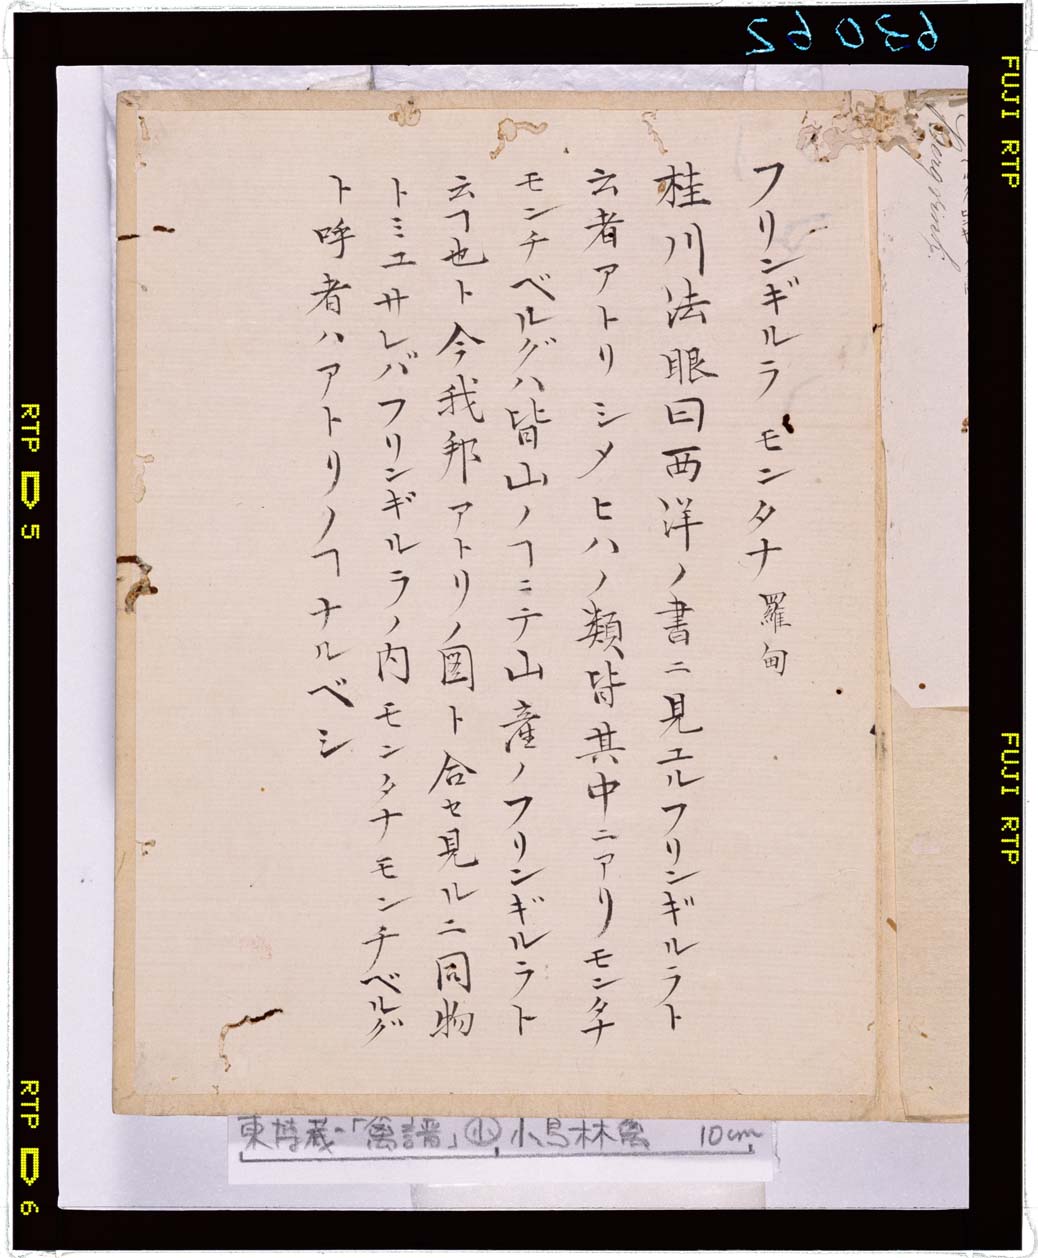 フリンギルラ モンタナ 羅甸
桂川法眼曰西洋ノ書ニ見ユルフリンギルラト
云者アトリシメヒハノ類皆其中ニアリモンタナ
モンチベルグハ皆山ノヿニテ山産ノフリンギルラト
云ヿ也ト今我邦アトリノ図ト合セ見ルニ同物
トミユサレバフリンギルラノ内モンタナモンチベルグ
ト呼者ハアトリノヿナルベシ
東博蔵-「禽譜」小 小鳥林禽 10cm
63062
FUJI RTP
FUJI RTP
RTP 5
RTP 6